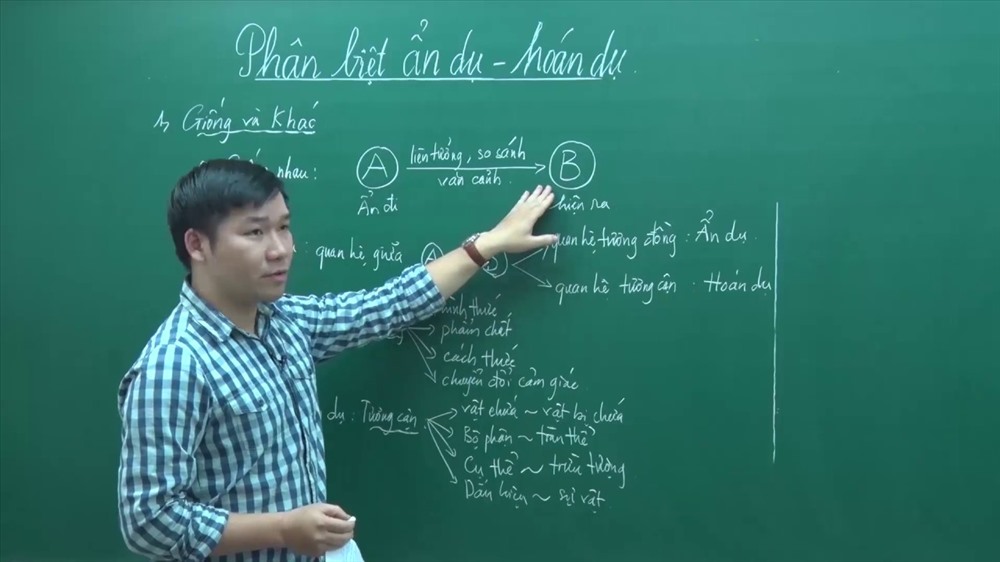 Phân biệt ẩn dụ - hoán dụ
1, Giống và Khác
nhau:
A liên tưởng, so sánh B
văn cảnh
Ẩn đi hiện ra
: quan hệ giữa A
quan hệ tương đồng : Ẩn dụ
quan hệ tương cận . Hoán dụ
hình thức
phẩm chất
cách thức
chuyển đổi cảm giác
dụ : Tương cận
vật chứa ~ vật bị chứa
Bộ phận ~ toàn thể
Cụ thể ~ trừu tượng
Dấu hiệu ~ sự vật